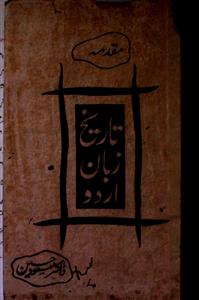 مقدمہ
تاریخ
زبان
اردو
ڈاکٹر مسعود حسین